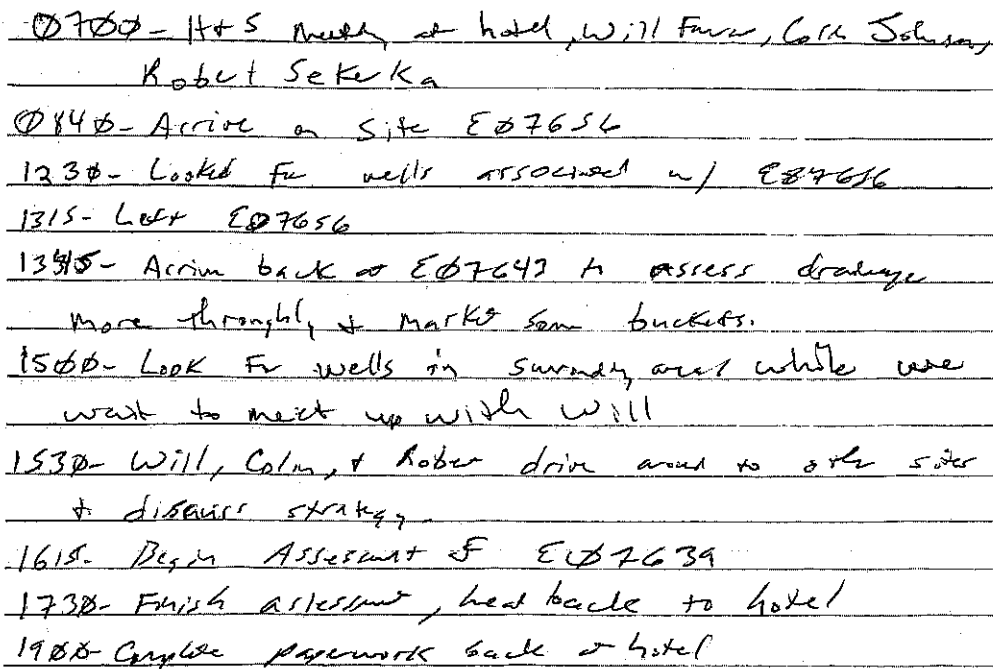 0700- H+S meeting at hotel, Will Farr, Colin Johnson,
Robert Sekerka
0840- Arrive on Site E07656
1230- Looked for wells associated w/ E07656
1315- Left E07656
1345- Arrive back at E07643 to assess drainage
more throughly + marked some buckets.
1500- Look for wells in surrounding area while we
wait to meet up with Will
1530- Will, Colin, + Robert drive around to other sites
+ discuss strategy.
1615- Begin Assessment of E07639
1730- Finish assessment, head back to hotel
1900- Complete paperwork back at hotel